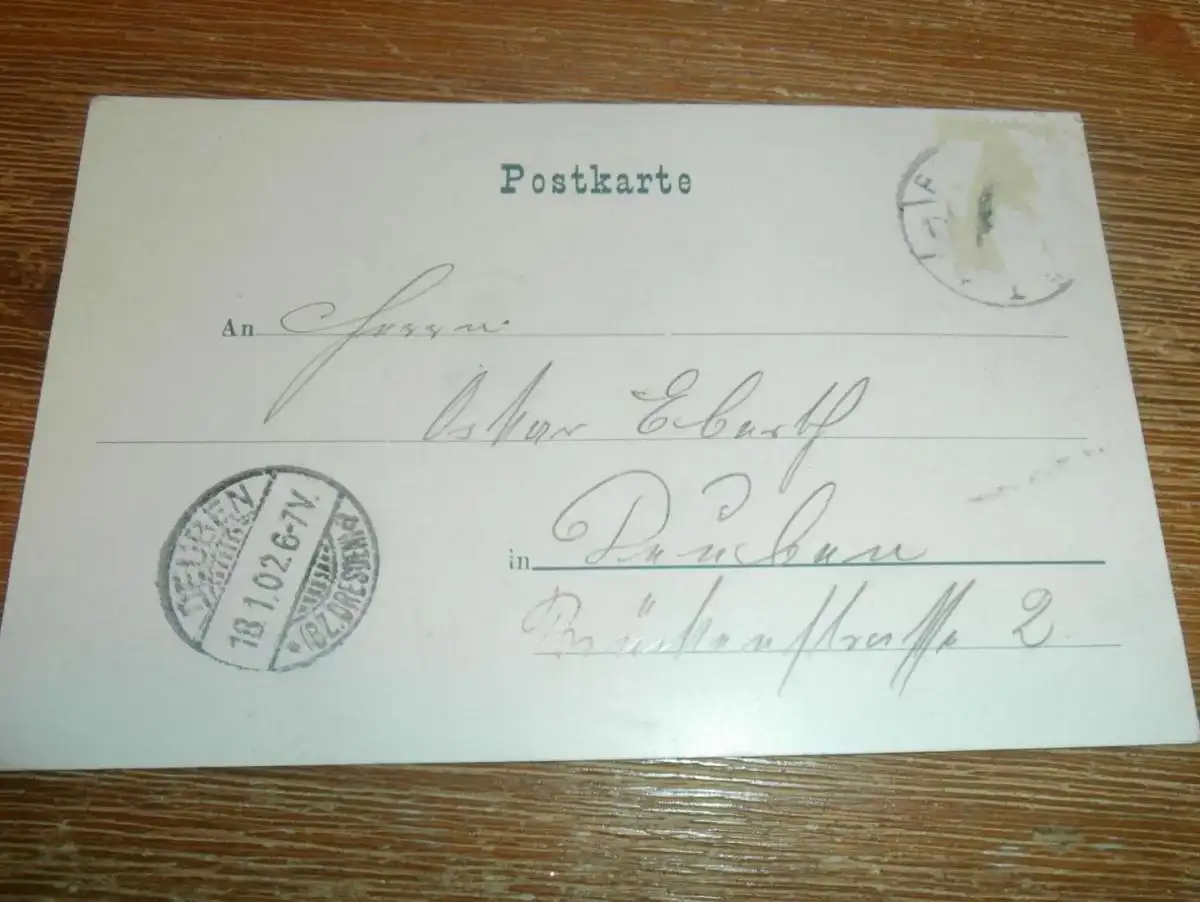 Postkarte
An Herrn
Oskar Eberth
in Deuben
Brückenstrasse 2
DEUBEN
18.1.02.6-7V.
*(BZ.DRESDEN)a